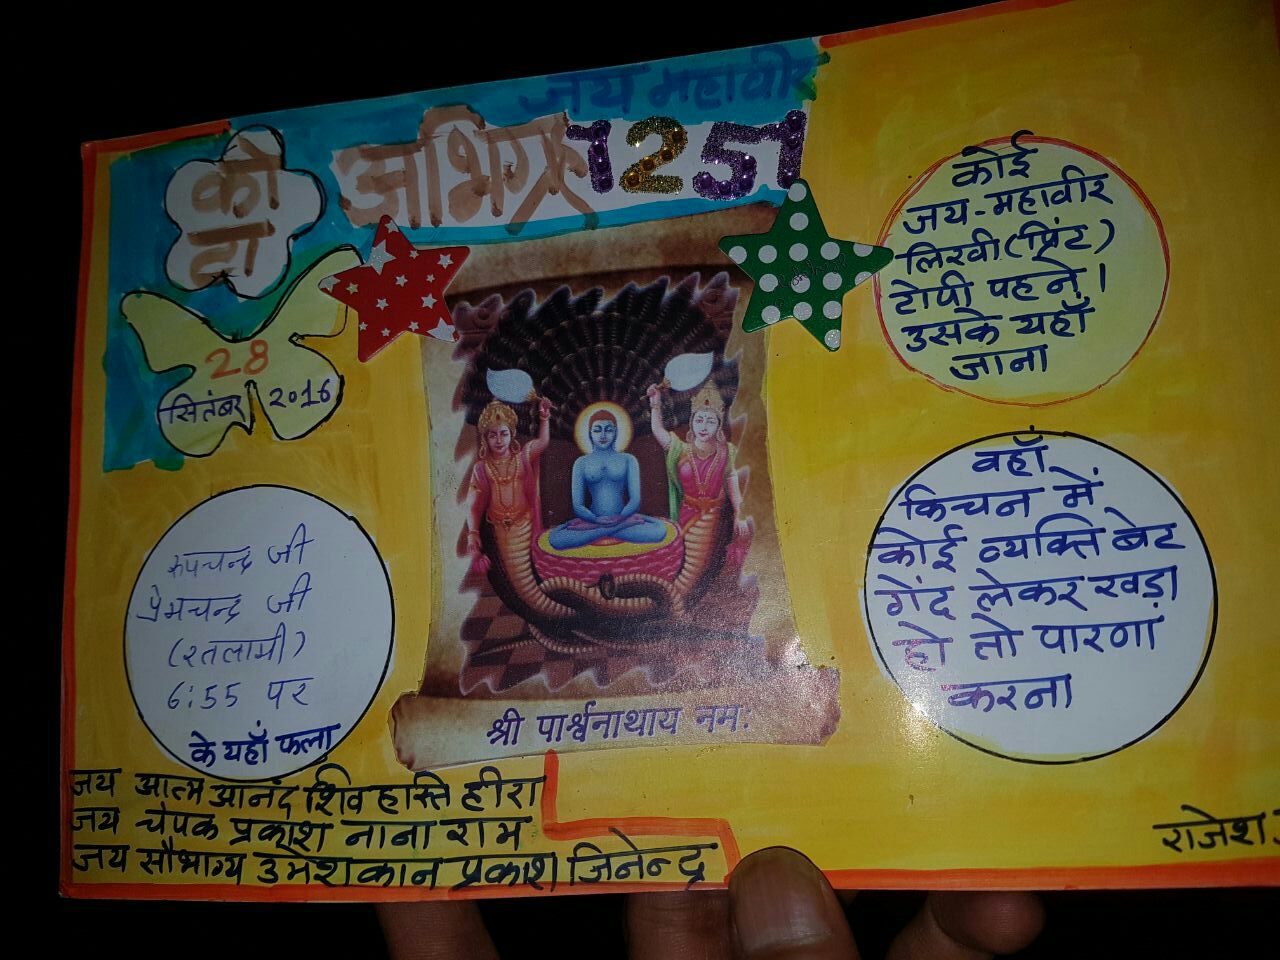 जय महावीर
को
दा
अभिग्रह
125वां
28
सितंबर 2016
कोई
जय-महावीर
लिखी (प्रिंट)
टोपी पहने।
उसके यहाँ
जाना
वहाँ
किचन में
कोई व्यक्ति बेट
गेंद लेकर खड़ा
हो तो पारणा
करना
रुपचन्द्र जी
प्रेमचन्द्र जी
(रतलामी)
6:55 पर
के यहाँ फला
श्री पार्श्वनाथाय नमः
जय आत्म आनंद शिव हास्ति हीरा
जय चंपक प्रकाश नाना राम
जय सौभाग्य उमेश कान प्रकाश जिनेन्द्र
राजेश